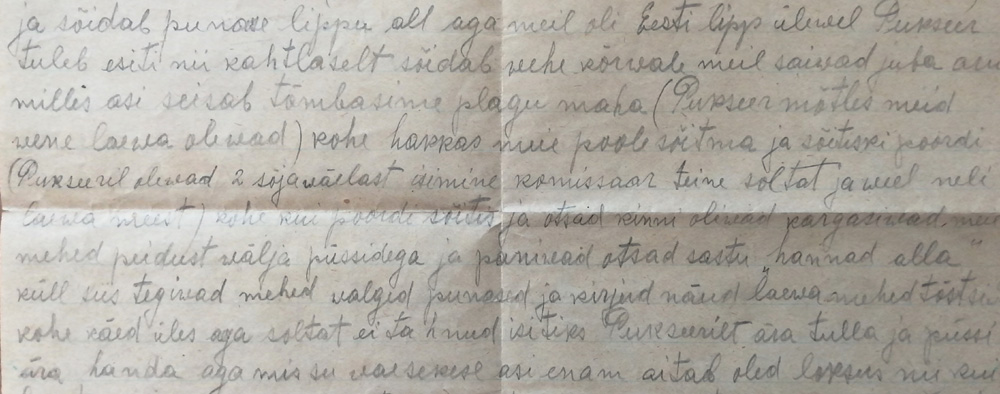 ja sõidab punase lippu all aga meil oli Eesti lipp ülewel Pukseer
tuleb esiti nii kahtlaselt sõidab vehe kõrwale meil saiwad juba aru
millis asi seisab tõmbasime plagu maha (Pukseer mõtles meid
vene laewa olewad) kohe hakkas meie poole sõitma ja sõitiski poordi
(Pukseeril oliwad 2 sõjawäelast esimine komissaar teine soltat ja weel neli
laewa meest) kohe kui poordi sõitis ja otsad kinni oliwad kargasiwad meie
mehed peidust wälja püssidega ja paniwad otsad sastu "hannad alla"
küll siis tegiwad mehed valged punased ja kirjud näud laewa mehed tõstsid
kohe käed üles aga soltat ei tahnud isitiks Pukseerilt ära tulla ja püssi
ära handa aga mis su vaesekese asi enam aitab oled loksus nii kui